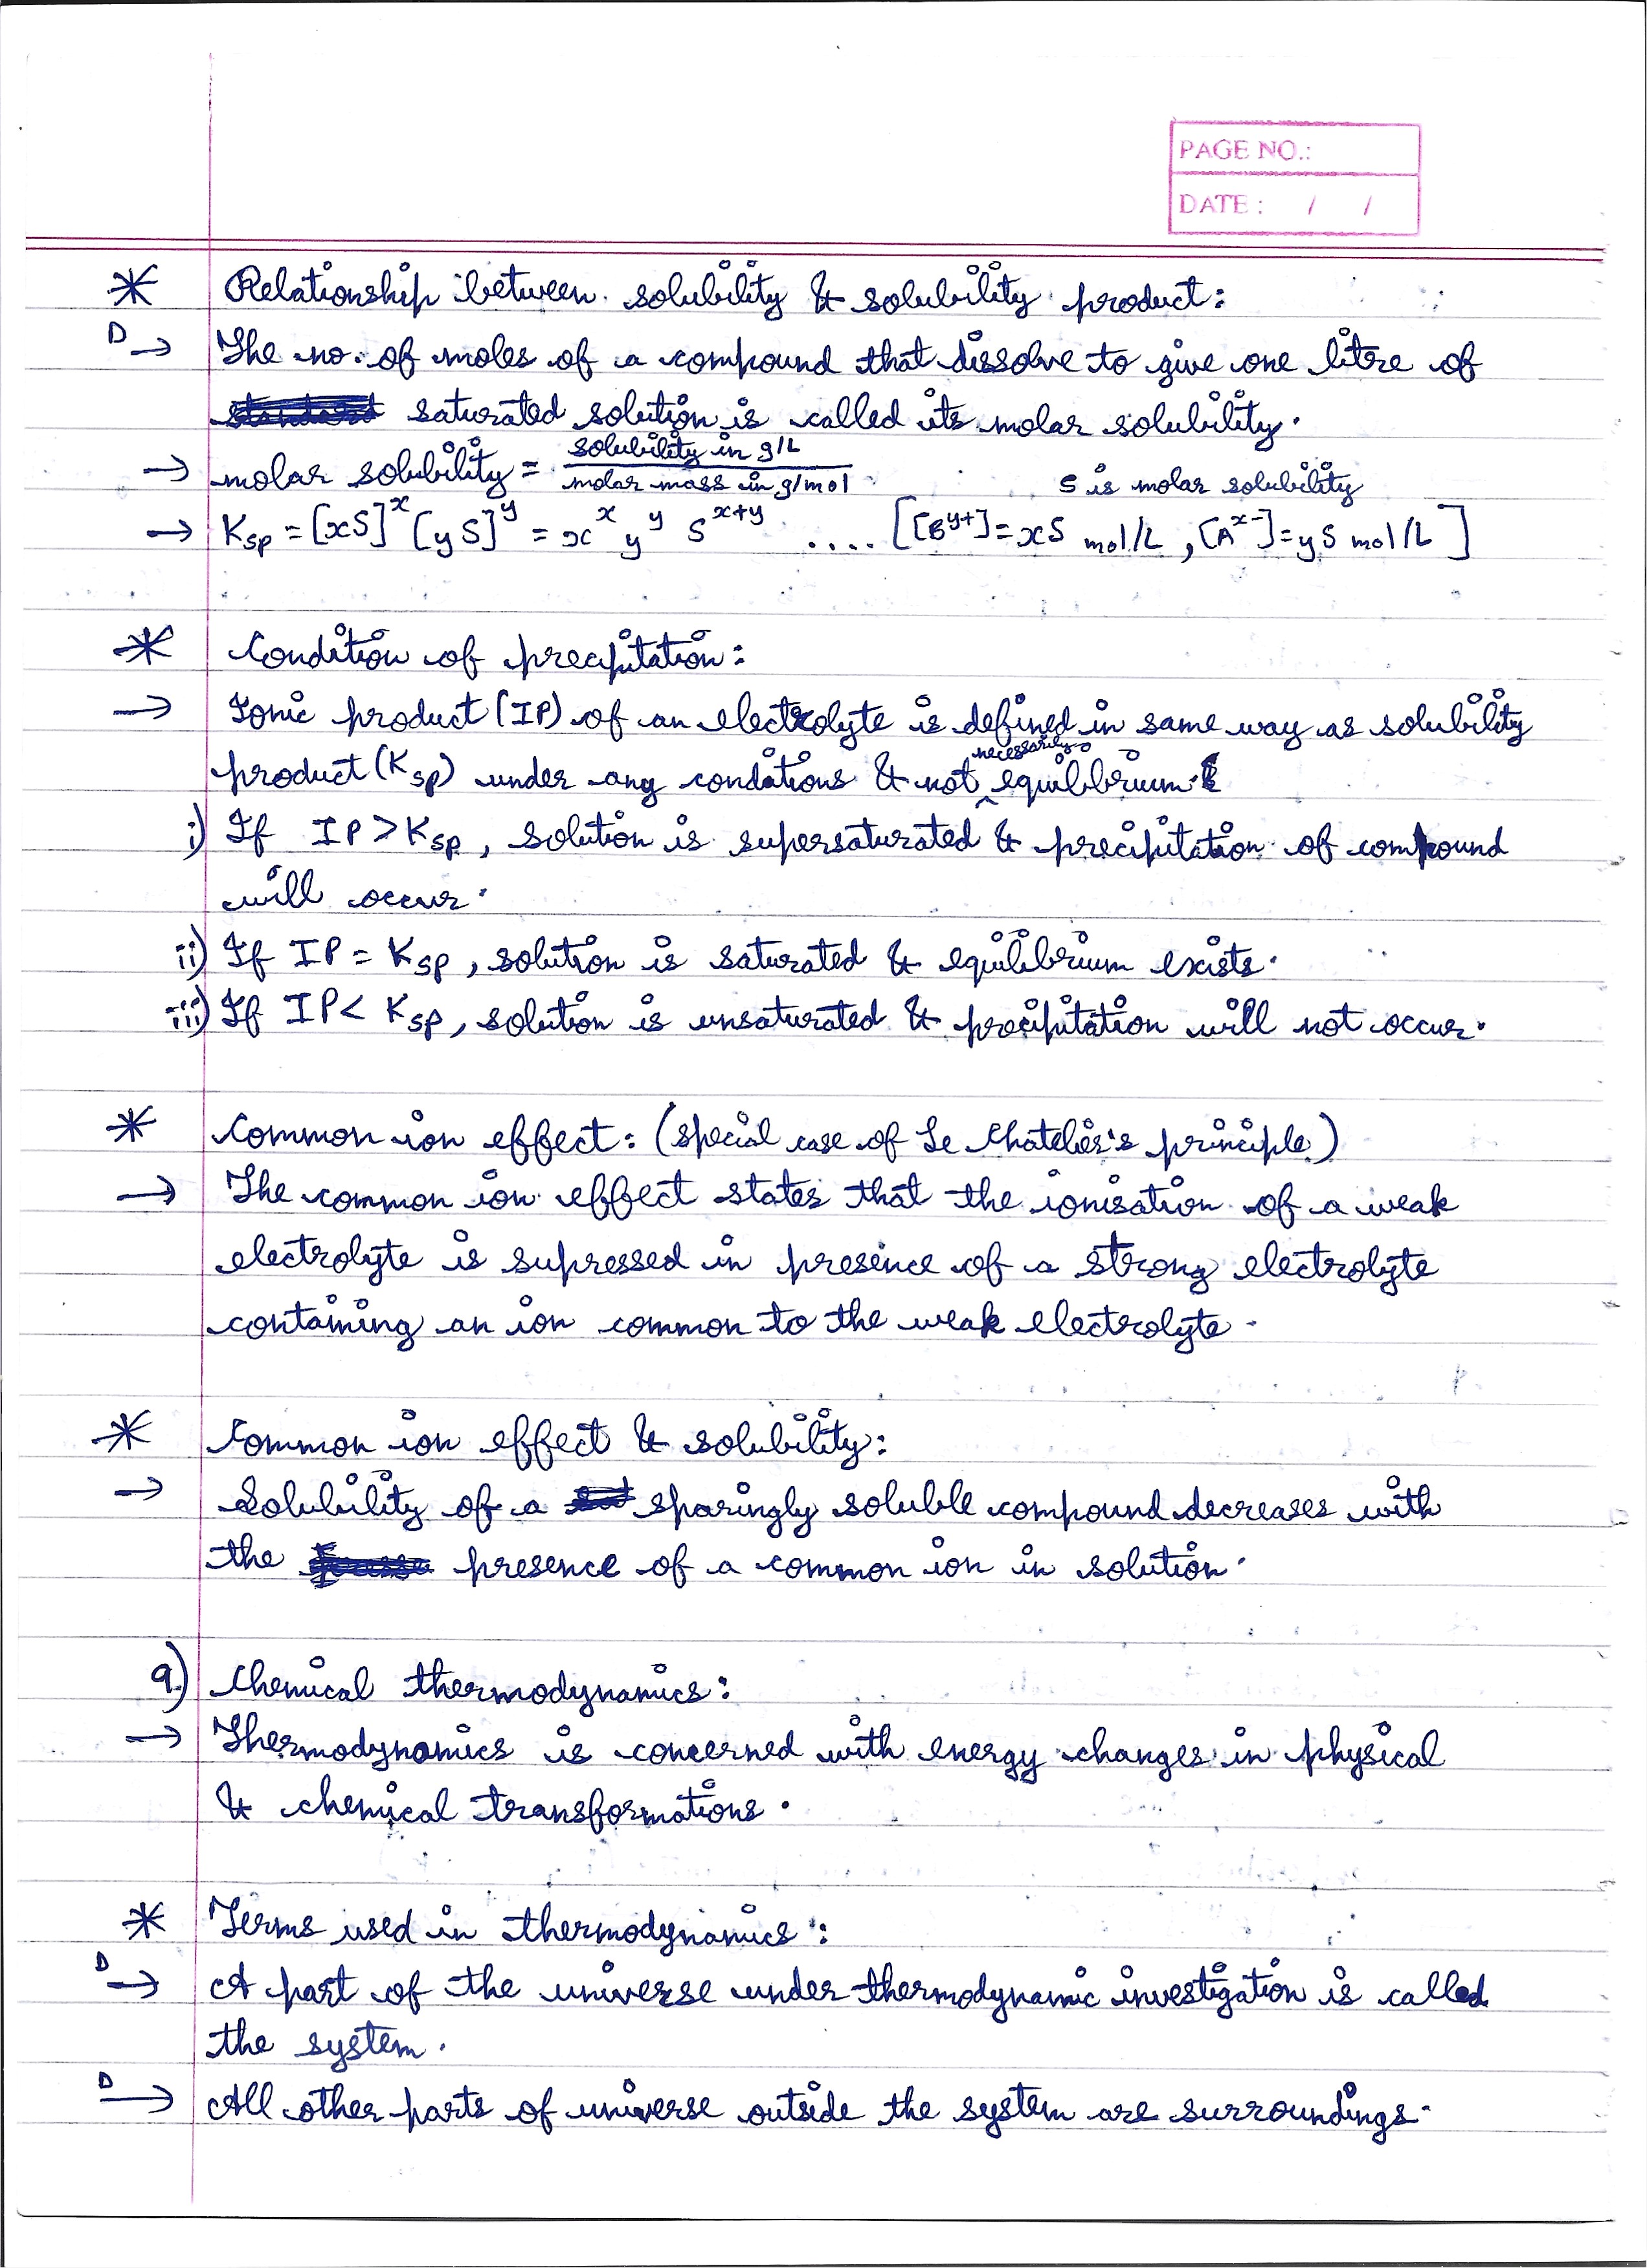 PAGE NO.:
DATE : / /
* Relationship between solubility & solubility product:
D → The no. of moles of a compound that dissolve to give one litre of
saturated solution is called its molar solubility.
→ molar solubility = solubility in g/L / molar mass in g/mol S is molar solubility
→ Ksp = [xS]^x [yS]^y = x^x y^y S^x+y .... [[B^y+] = xS mol/L, [A^x-] = yS mol/L]
* Condition of precipitation:
→ Ionic product (IP) of an electrolyte is defined in same way as solubility
product (Ksp) under any conditions & not necessarily equilibrium.
i) If IP > Ksp, solution is supersaturated & precipitation of compound
will occur.
ii) If IP = Ksp, solution is saturated & equilibrium exists.
iii) If IP < Ksp, solution is unsaturated & precipitation will not occur.
* Common ion effect: (special case of Le Chatelier's principle)
→ The common ion effect states that the ionisation of a weak
electrolyte is supressed in presence of a strong electrolyte
containing an ion common to the weak electrolyte.
* Common ion effect & solubility:
→ Solubility of a sparingly soluble compound decreases with
the presence of a common ion in solution.
9.) Chemical thermodynamics:
→ Thermodynamics is concerned with energy changes in physical
& chemical transformations.
* Terms used in thermodynamics:
D → A part of the universe under thermodynamic investigation is called
the system.
D → All other parts of universe outside the system are surroundings.